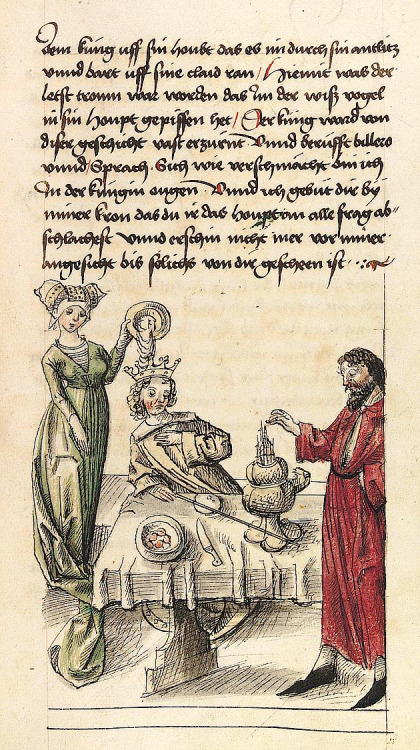 dem küng uff sin houbt das es im durch sin antlitz
vnnd bart uff sine claid ran / Hiemit was der
letst tromm war worden das Im der wiß vogel
in sin houpt gepissen het / Der küng ward von
diser geschicht vast erzürnt Vnnd berüfft billero
vnnd sprach Sich wie verschmächt bin ich
In der küngin ougen Vnnd ich gebüt dir by
miner kron das du ir das houpt on alle frag ab-
schlachest vnnd erschin nicht mer vor miner
angesicht bis sölichs von dir gescheen ist